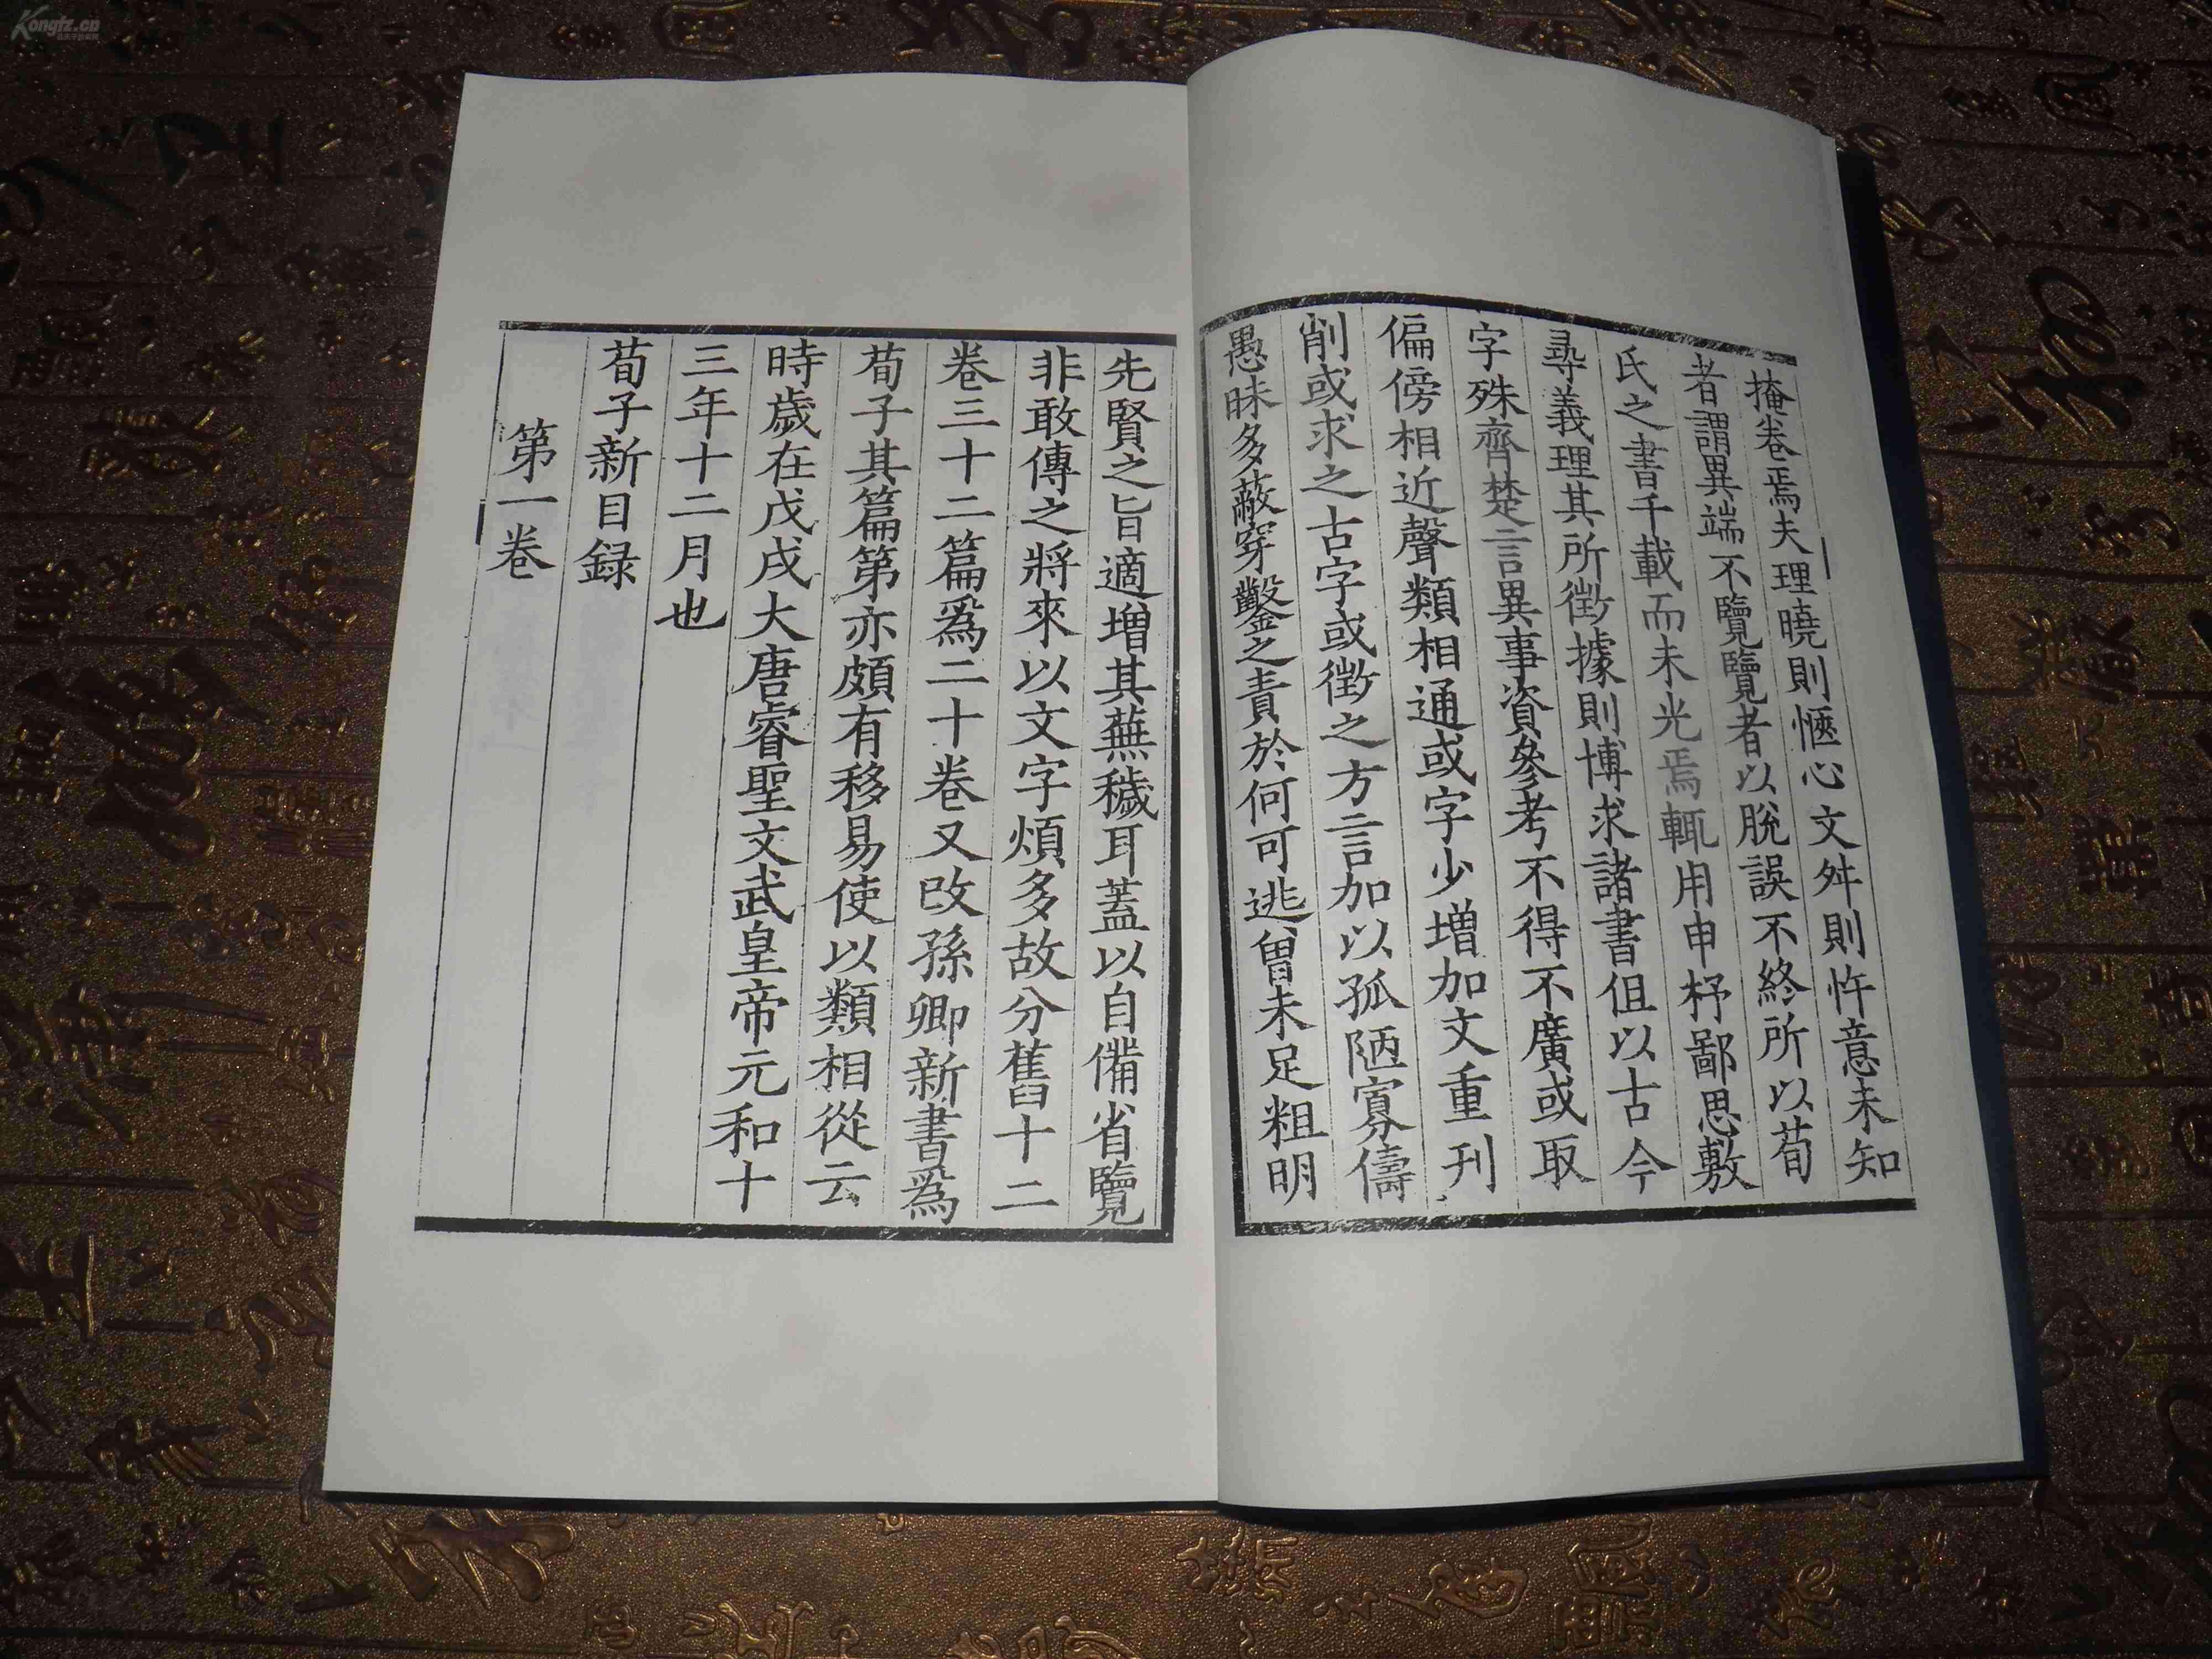 掩卷焉夫理曉則愜心文舛則忤意未知
者謂異端不覽覽者以脫誤不終所以荀
氏之書千載而未光焉輒用申杼鄙思敷
尋義理其所徵據則博求諸書但以古今
字殊齊楚言異事資參考不得不廣或取
偏傍相近聲類相通或字少增加文重刊
削或求之古字或徵之方言加以孤陋寡儔
愚昧多蔽穿鑿之責於何可逃曾未足粗明
先賢之旨適增其蕪穢耳蓋以自備省覽
非敢傳之將來以文字煩多故分舊十二
卷三十二篇爲二十卷又改孫卿新書爲
荀子其篇第亦頗有移易使以類相從云
時歲在戊戌大唐睿聖文武皇帝元和十
三年十二月也
荀子新目録
第一卷
Kongfz.cn